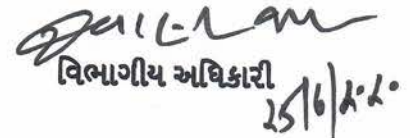 વિભાગીય અધિકારી
25/6/2020